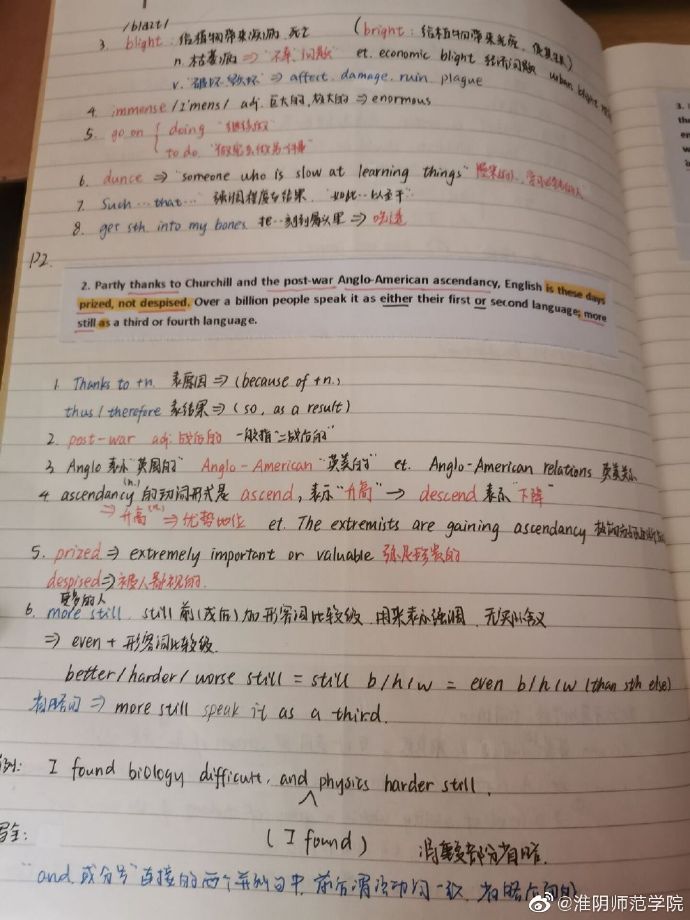 /blaɪt/
3. blight: 给植物带来 死亡 (bright: 给植物带来光症
n. 枯萎病 ⇒ "不幸 问题" et. economic blight 经济问题 urban blight
v. "破坏 毁坏" ⇒ affect, damage, ruin plague
4. immense /ɪ'mens/ adj. 巨大的, 极大的 ⇒ enormous
5. go on { doing "继续的"
to do
6. dunce ⇒ "someone who is slow at learning things"
7. Such … that … 强调程度与结果, "如此…以至于"
8. get sth into my bones 把…刻到骨头里 ⇒ 吃透
P2.
2. Partly thanks to Churchill and the post-war Anglo-American ascendancy, English is these days
prized, not despised. Over a billion people speak it as either their first or second language; more
still as a third or fourth language.
1. Thanks to +n. 表原因 ⇒ (because of +n.)
thus / therefore 表结果 ⇒ (so, as a result)
2. post-war adj. 战后的 一般指"二战后的"
3. Anglo 表示"英国的" Anglo-American "英美的" et. Anglo-American relations 英美关系
(n.)
4 ascendancy 的动词形式是 ascend, 表示"升高" → descend 表示"下降"
⇒ 升高 (n.) ⇒ 优势地位 et. The extremists are gaining ascendancy
5. prized ⇒ extremely important or valuable
despised ⇒ 被人鄙视的
更多的人
6. more still. still 前(或后)加形容词比较级, 用来表示强调, 无实际含义
⇒ even + 形容词比较级.
better/harder/worse still = still b/h/w = even b/h/w (than sth else)
省略句 ⇒ more still speak it as a third.
例: I found biology difficult, and physics harder still.
(I found) 重复部分省略.
"and 或分号"连接的两个并列句中, 前后谓语动词一致, 省略
@淮阴师范学院